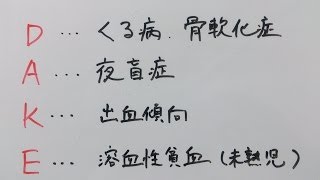 D … くる病．骨軟化症
A … 夜盲症
K … 出血傾向
E … 溶血性貧血（未熟児）